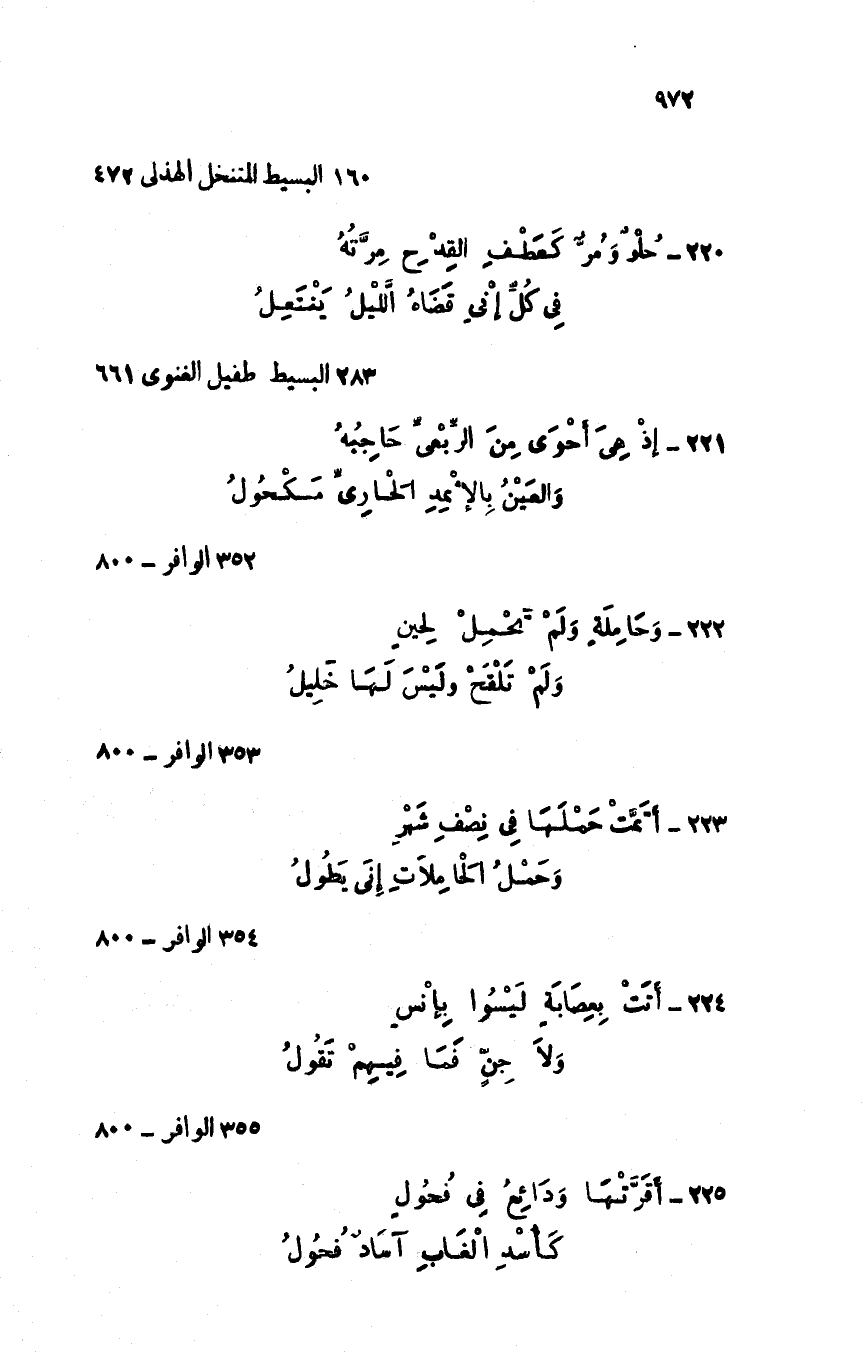 ٩٧٢
١٦٠ البسيط المتنخل الهذلى ٤٧٢
٢٢٠ - حُلْوٌ وَمُرٌّ كَعَطْفِ القِدْحِ مِرَّتُهُ
فِي كُلِّ إِنْيٍ قَضَاهُ الَّليْلُ يَنْتَعِلُ
٢٨٣ البسيط طفيل الغنوى ٦٦١
٢٢١ - إِذْ هِيَ أَحْوَى مِنَ الرِّبْعِىِّ حَاجِبُهُ
وَالعَيْنُ بِالإِثْمِدِ الحَارِىِّ مَكْحُولُ
٣٥٢ الوافر - ٨٠٠
٢٢٢ - وَحَامِلَةٍ وَلَمْ تَحْمِلْ لِحِينٍ
وَلَمْ تَلْقَحْ ولَيْسَ لَهَا خَلِيلُ
٣٥٣ الوافر - ٨٠٠
٢٢٣ - أَتَمَّتْ حَمْلَهَا فِي نِصْفِ شَهْرٍ
وَحَمْلُ الحَامِلاَتِ إِنَى يَطُولُ
٣٥٤ الوافر - ٨٠٠
٢٢٤ - أَتَتْ بِعِصَابَةٍ لَيْسُوا بِإِنْسٍ
وَلاَ جِنٍّ فَمَا فِيهِمْ تَقُولُ
٣٥٥ الوافر - ٨٠٠
٢٢٥ - أَقَرَّتْهَا وَدَائِعُ فِي فُحُولٍ
كَأُسْدِ الْغَابِ آسَادٌ فُحُولُ